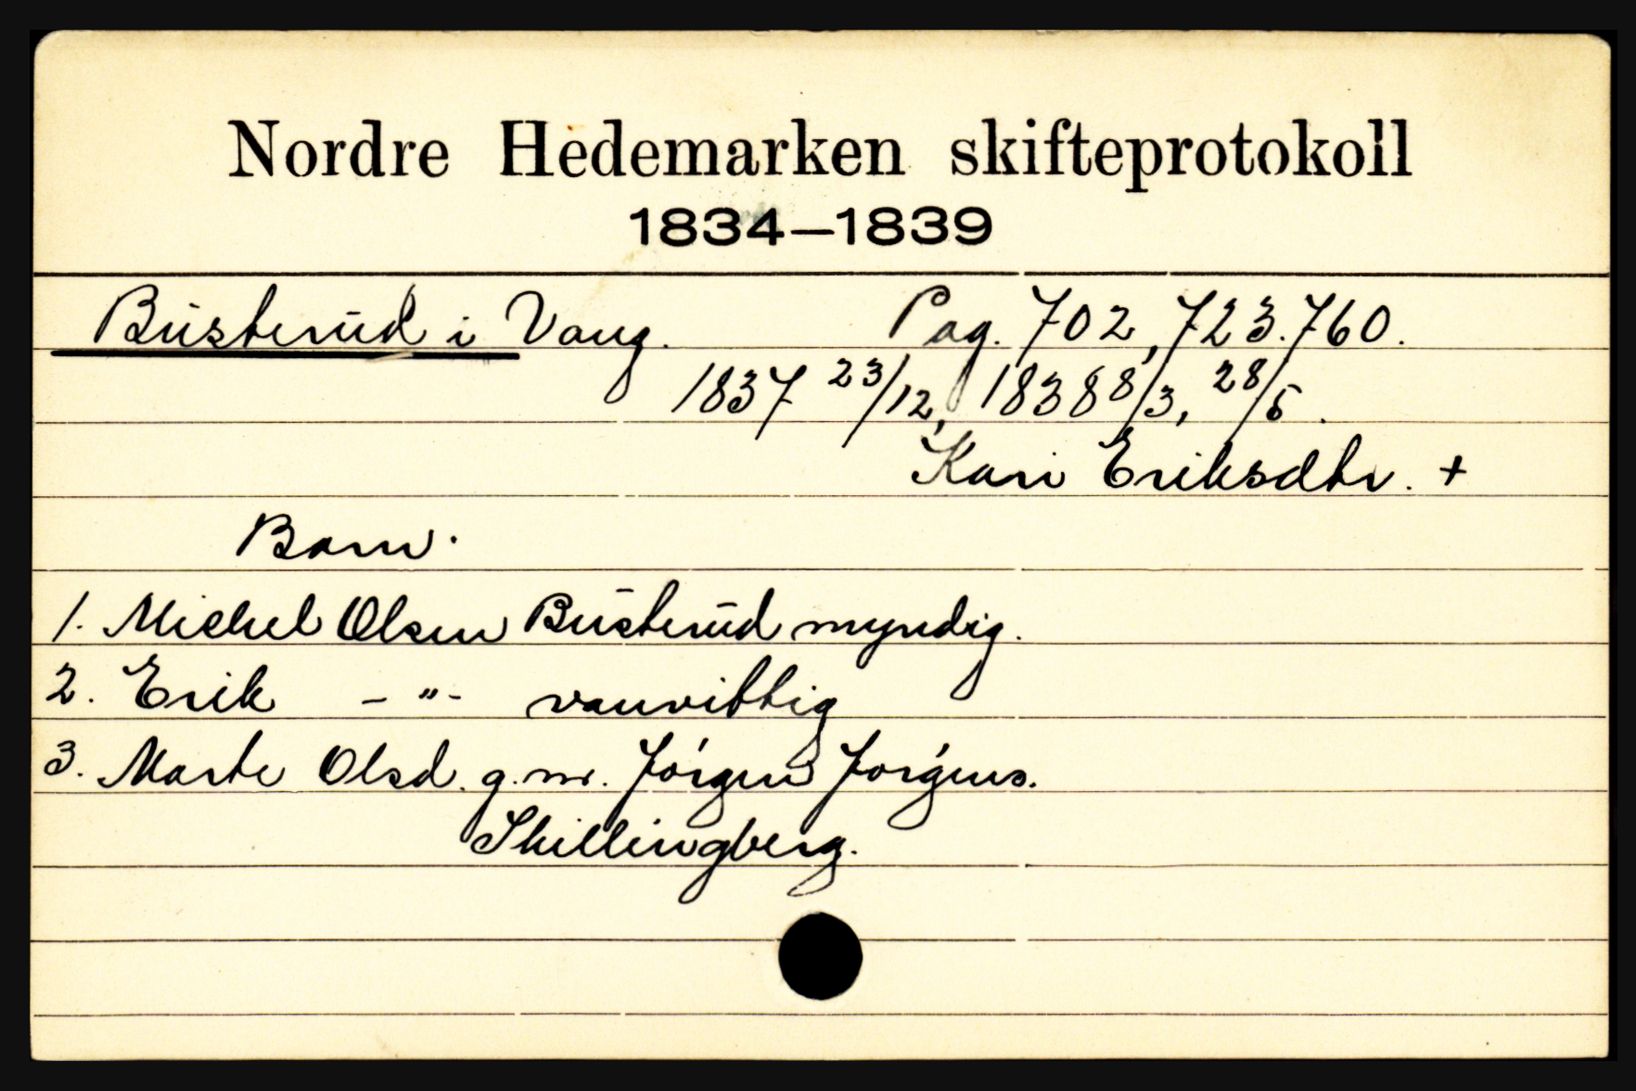 Nordre Hedemarken skifteprotokoll
1834–1839
Busterud i Vang. Pag. 702, 723. 760.
1837 23/12, 1838 8/3, 28/5.
Kari Eriksdtr. +
Barn.
1. Michel Olsen Busterud myndig.
2. Erik -"- vanvittig
3. Marte Olsd. g.m. Jórgen Jorgens.
Skillingberg.